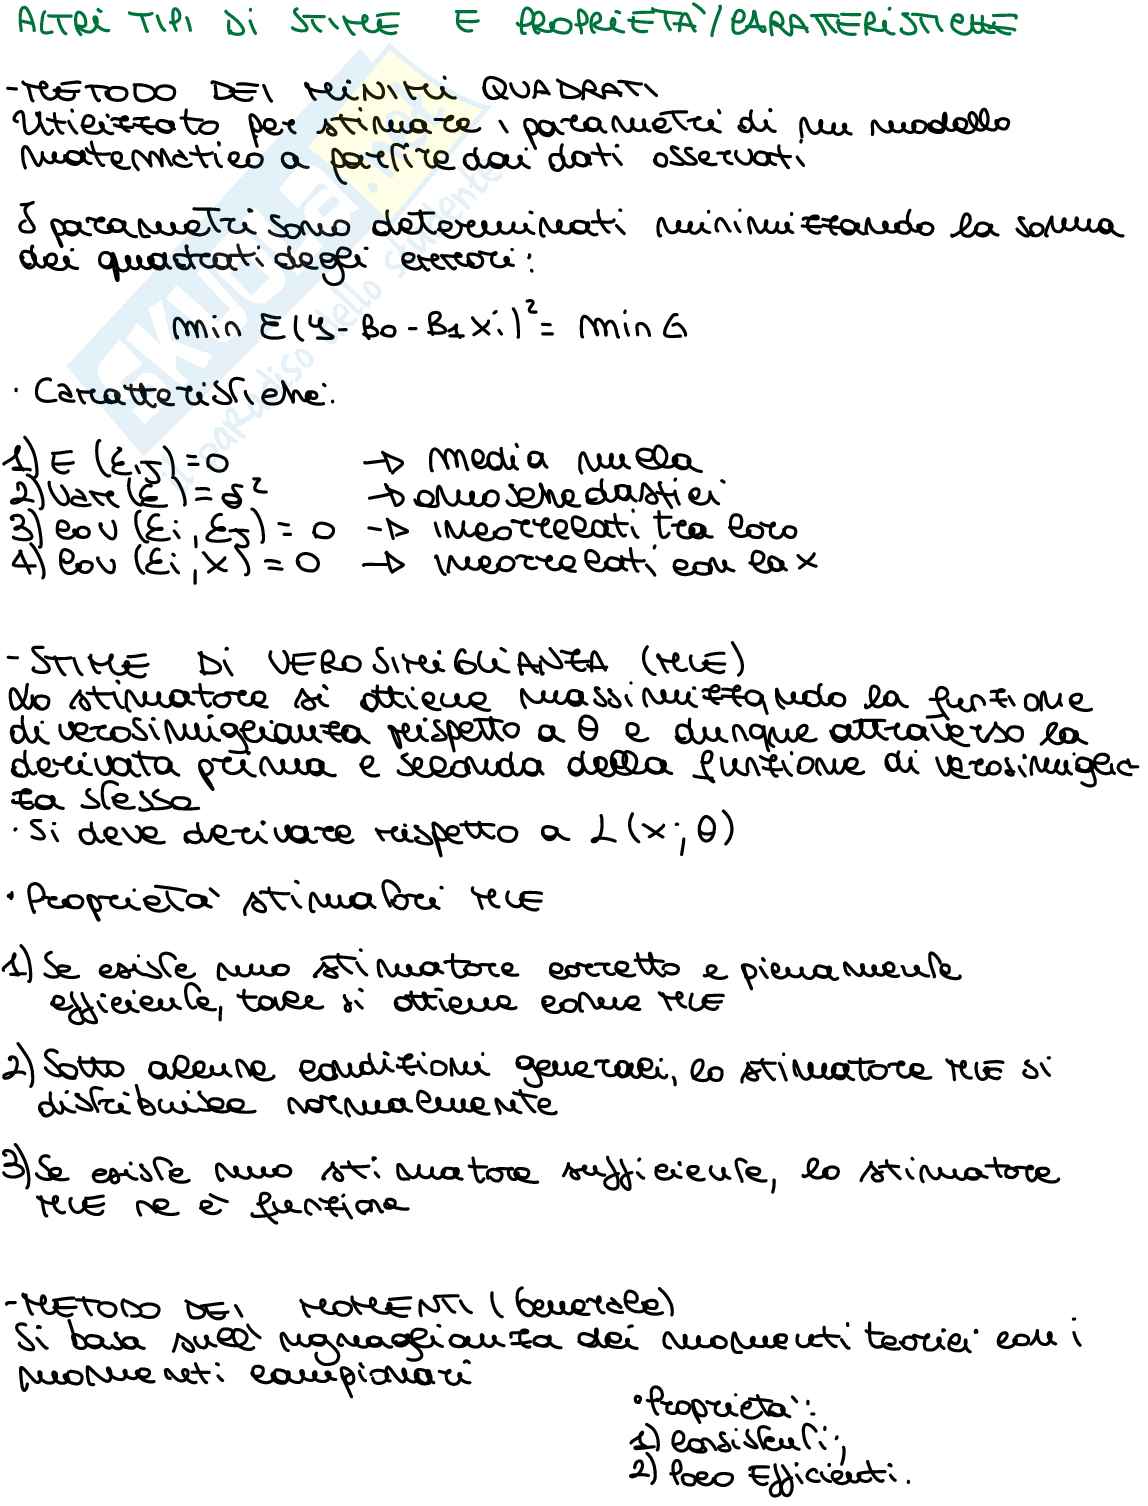 ALTRI TIPI DI STIME E PROPRIETÀ/CARATTERISTICHE
-METODO DEI MINIMI QUADRATI
Utilizzato per stimare i parametri di un modello
matematico a partire dai dati osservati
I parametri sono determinati minimizzando la somma
dei quadrati degli errori:
min Σ(y - B0 - B1 xi)² = min G
· Caratteristiche:
1) E (εi,j) = 0 → media nulla
2) Var (ε ) = δ² → omoschedastici
3) cov (εi, εj) = 0 -→ incorrelati tra loro
4) cov (εi, x) = 0 → incorrelati con la x
- STIME DI VEROSIMIGLIANZA (MLE)
Lo stimatore si ottiene massimizzando la funzione
di verosimiglianza rispetto a θ e dunque attraverso la
derivata prima e seconda della funzione di verosimiglia
za stessa
· Si deve derivare rispetto a L(x; θ)
· Proprietà stimatori MLE
1) Se esiste uno stimatore corretto e pienamente
efficiente, tale si ottiene come MLE
2) Sotto alcune condizioni generali, lo stimatore MLE si
distribuisce normalmente
3) Se esiste uno stimatore sufficiente, lo stimatore
MLE ne è funzione
-METODO DEI MOMENTI (Generale)
Si basa sull'uguaglianza dei momenti teorici con i
momenti campionari
· Proprietà:
1) Consistenti;
2) Poco Efficienti.
SKUOLA.net
il paradiso dello studente